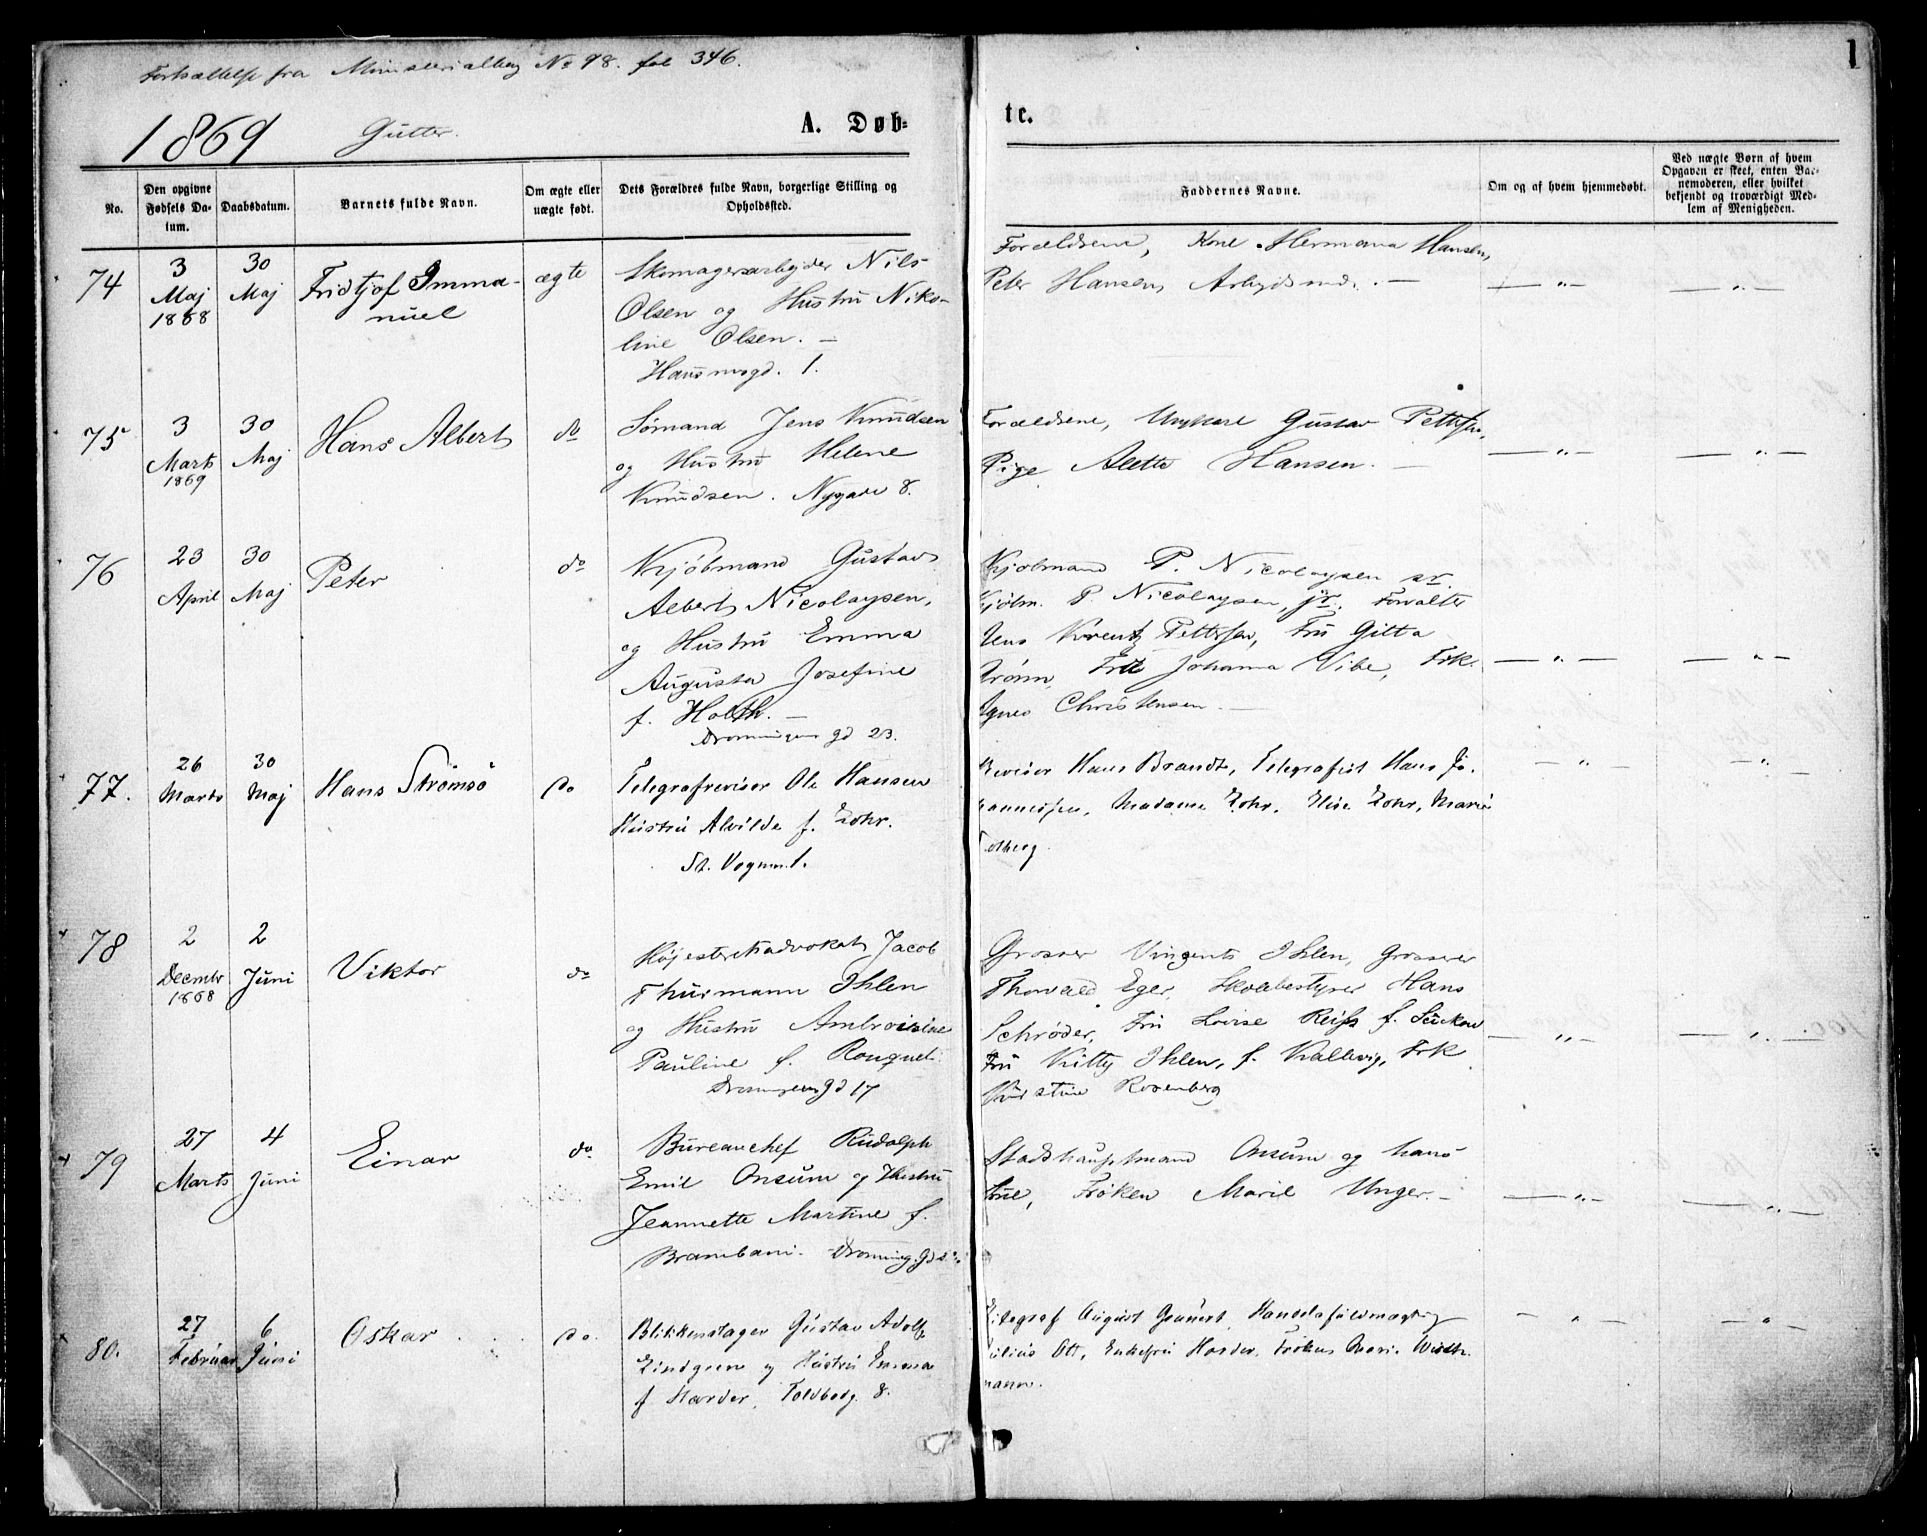 Fortsættelse fra Ministerialbog No 98. fol 346.
1
1869 Gutter.
A. Døb-
te.
No.
Den opgivne Fødsels Da-tum.
Daabsdatum.
Barnets fulde Navn.
Om ægte eller uægte født.
Dets Forældres fulde Navn, borgerlige Stilling og Opholdssted.
Faddernes Navne.
Om og af hvem hjemmedøbt.
Ved uægte Børn af hvem Opgaven er skeet, enten Bar-nemoderen, eller hvilket bekjendt og troværdigt Med-lem af Menigheden.
74
3 Maj 1868
30 Maj
Fridtjof Imma-
nuel
ægte
Skomagerarbejder Nils
Olsen og Hustru Niko-
line Olsen. —
Hausmsgd. 1.
Forældrene, Kone Hermana Hansen,
Peter Hansen, Arbejdsmd. —
— „ —
— „ —
75
3 Marts 1869
30 Maj
Hans Albert
do
Sømand Jens Knudsen
og Hustru Helene
Knudsen. Nygade 8.
Forældrene, Ungkarl Gustav Pettersen,
Pige Alette Hansen. —
— „ —
— „ —
76
23 April
30 Maj
Peter
do
Kjøbmand Gustav
Albert Nicolaysen,
og Hustru Emma
Augusta Josefine
f. Holth. —
Dronningens gd 23.
Kjøbmand P. Nicolaysen sr.
Kjøbm. P. Nicolaysen, jr. Forvalter
Jens Pettersen, Fru Gitta
Johanna Vibe, Frk.
Agnes Christensen —
— „ —
— „ —
77.
26 Marts
30 Maj
Hans Strømsö
do
Telegrafrevisor Ole Hansen
Hustru Alvilde f. Lohr.
St. Vognm. 1.
Revisor Hans Brandt, Telegrafist Hans Jo-
hannessen, Madame Lohr, Elise Lohr, Marie
— „ —
— „ —
78
2 Decembr 1868
2 Juni
Viktor
do
Højesteretsadvokat Jacob
Thurmann Ihlen
og Hustru Ambroisine
Pauline f. Rouquet.
Dronningens gd 17
Grosser Vingents Ihlen, Grosserer
Thorvald Eger, Skolebestyrer Hans
Schrøder, Fru Lovise Reiss f. Suckow
Fru Kitty Ihlen, f. Kallevig, Frk
Kirstine Rosenberg
— „ —
— „ —
79
27 Marts
4 Juni
Einar
do
Bureauchef Rudolph
Emil Onsum og Hustru
Jeannette Martine f.
Brambani. Dronning. gd
Stadshauptmand Onsum og hans
Frue, Frøken Marie Unger. —
— „ —
— „ —
80.
27 Februar
6 Juni
Oskar
do.
Blikkenslager Gustav Adolf
Lindgren og Hustru Emma
f Harder, Toldbodg. 8.
August Handelsfuldmægtig
Julius Ott, Enkefru Harder, Frøken Marie Width-
mann.
— „ —
— „ —